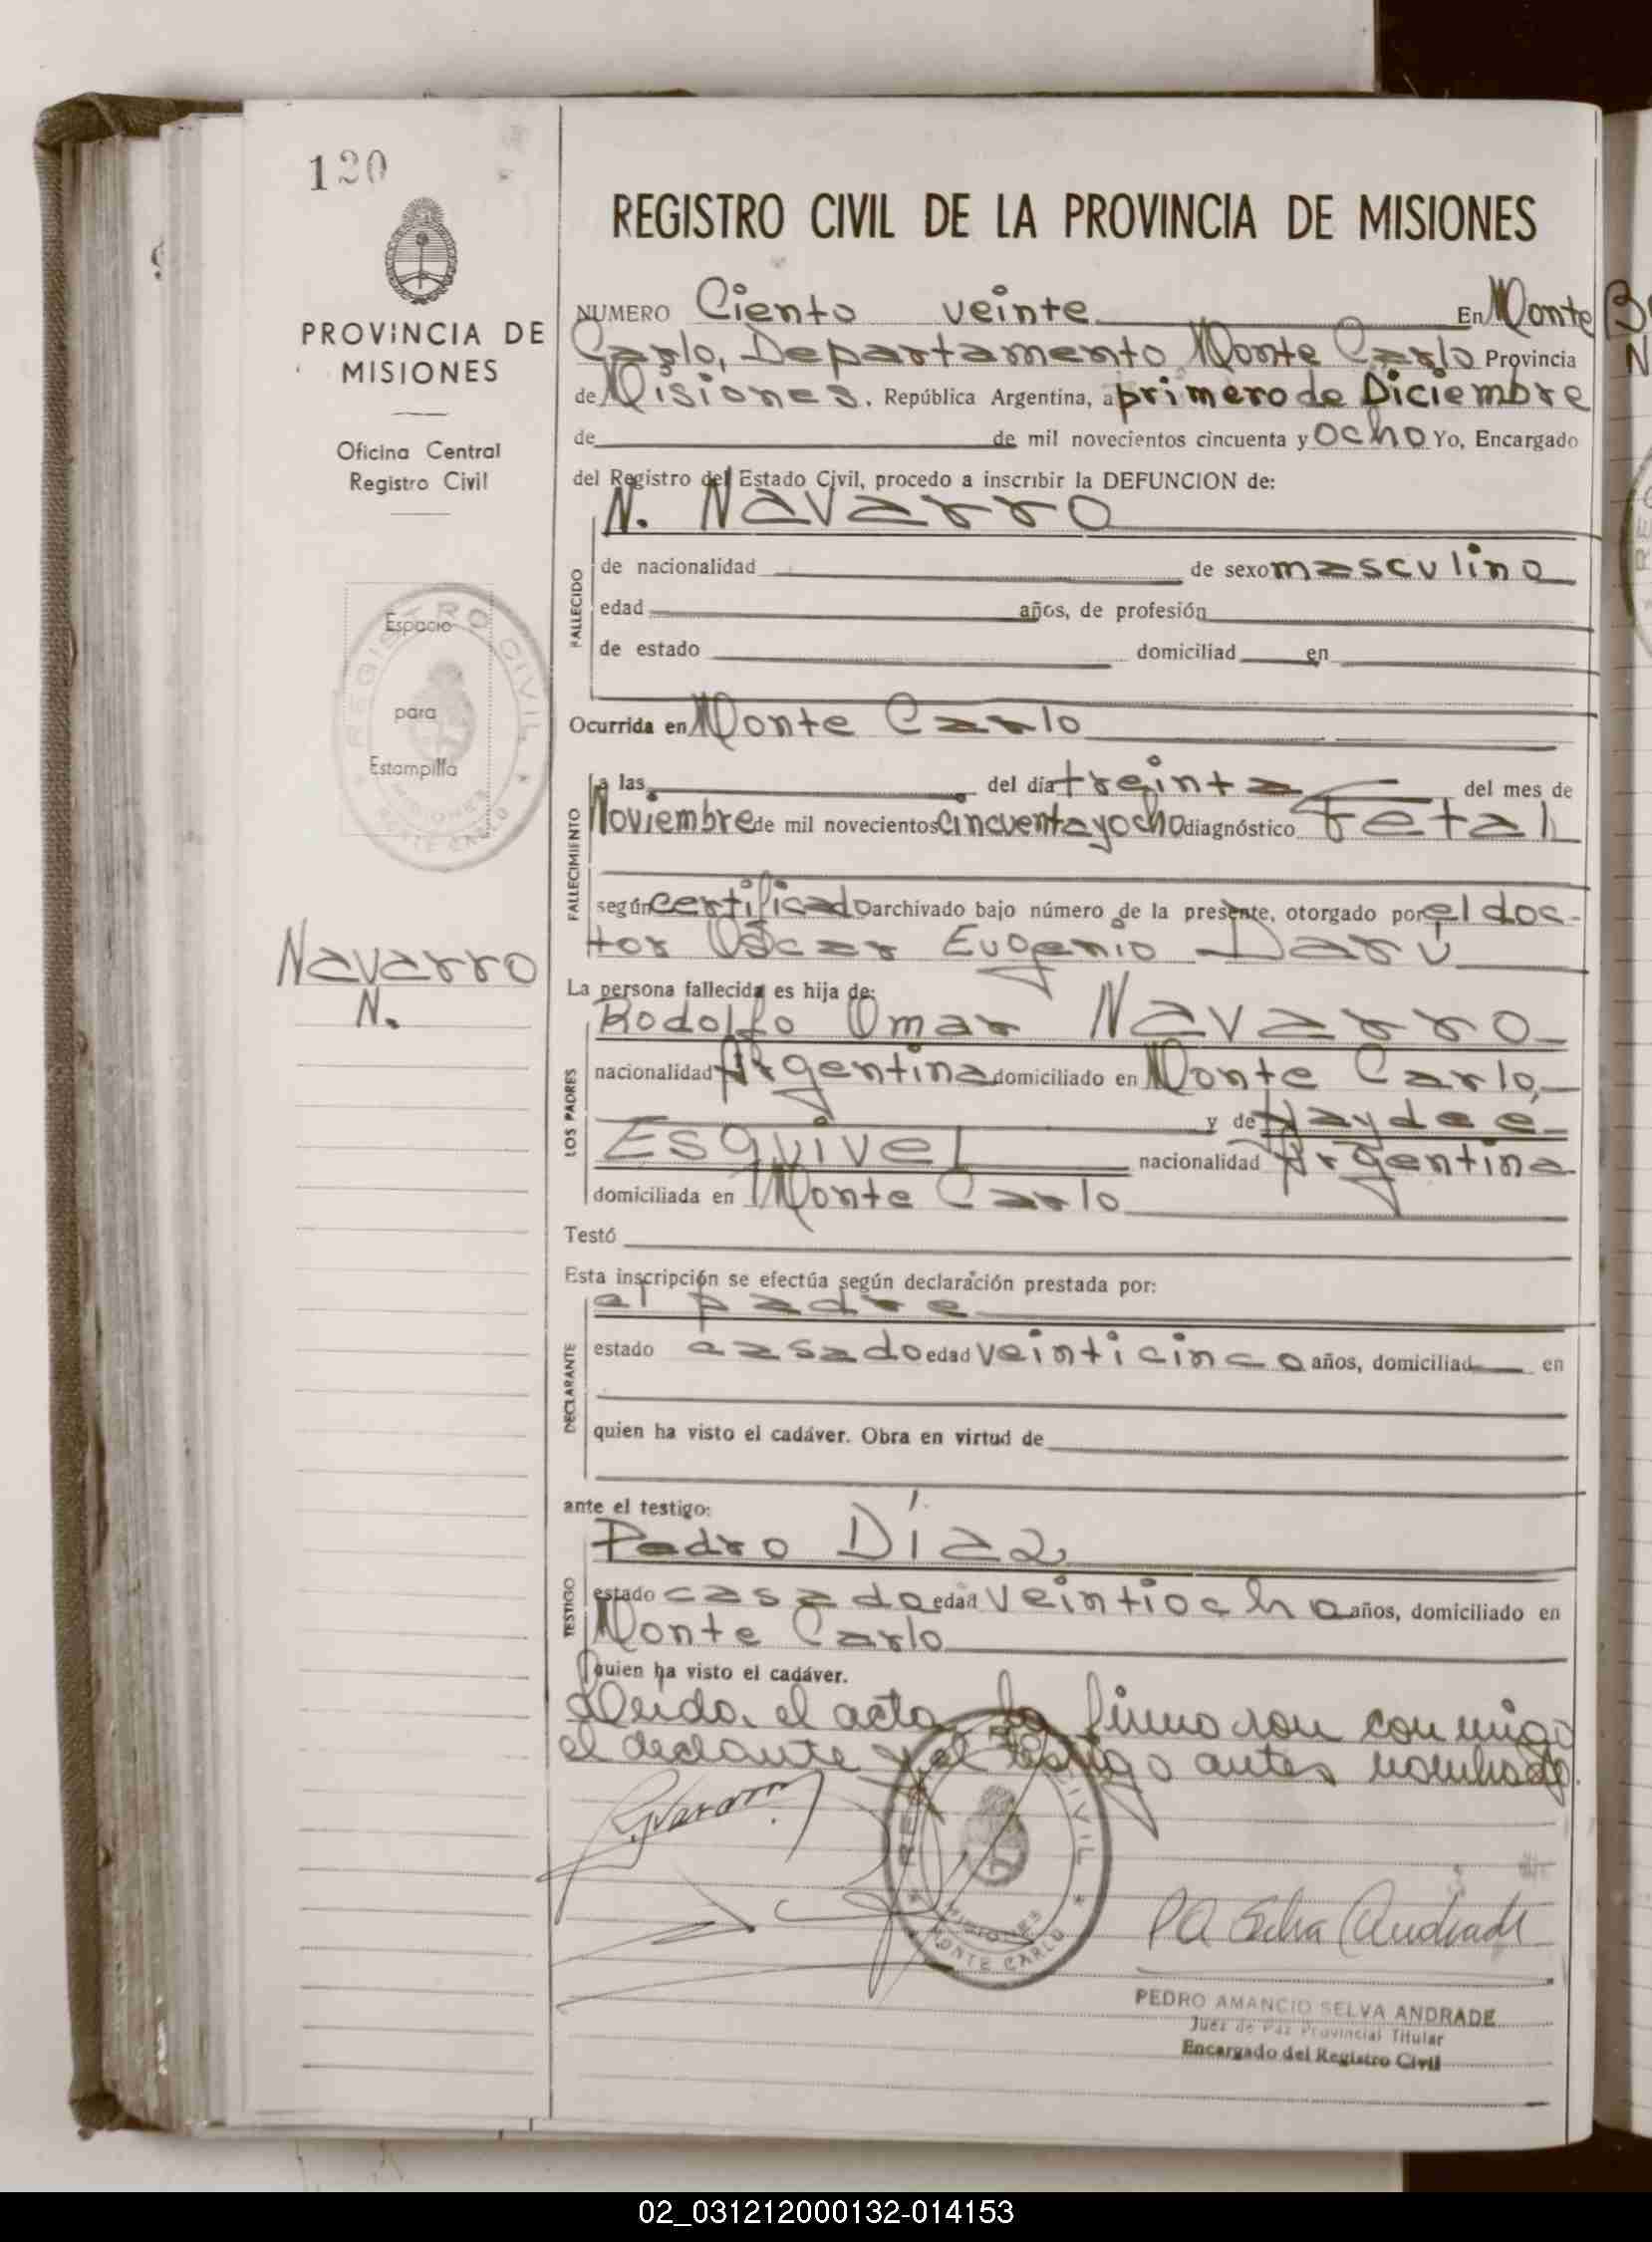 120
PROVINCIA DE
MISIONES
Oficina Central
Registro Civil
Espacio
para
Estampilla
REGISTRO CIVIL
MISIONES
MONTE CARLO
Navarro
N.
REGISTRO CIVIL DE LA PROVINCIA DE MISIONES
NUMERO Ciento veinte En Monte
Carlo, Departamento Monte Carlo Provincia
de Misiones. República Argentina, a primero de Diciembre
de de mil novecientos cincuenta y ocho Yo, Encargado
del Registro del Estado Civil, procedo a inscribir la DEFUNCION de:
N. Navarro
FALLECIDO
de nacionalidad de sexo masculino
edad años, de profesión
de estado domiciliad en
Ocurrida en Monte Carlo
FALLECIMIENTO
a las del día treinta del mes de
Noviembre de mil novecientos cincuenta y ocho diagnóstico fetal
según certificado archivado bajo número de la presente, otorgado por el doc-
tor Oscar Eugenio Darú
La persona fallecida es hija de:
LOS PADRES
Rodolfo Omar Navarro
nacionalidad Argentina domiciliado en Monte Carlo,
y de Haydee
Esquivel nacionalidad Argentina
domiciliada en Monte Carlo
Testó
Esta inscripción se efectúa según declaración prestada por:
DECLARANTE
el padre
estado casado edad veinticinco años, domiciliad en
quien ha visto el cadáver. Obra en virtud de
ante el testigo:
TESTIGO
Pedro Díaz
estado casado edad veintiocho años, domiciliado en
Monte Carlo
quien ha visto el cadáver.
Leida el acta la firmaron conmigo
el declarante y el testigo antes nombrado.
REGISTRO CIVIL
MISIONES
MONTE CARLO
P A Selva Andrade
PEDRO AMANCIO SELVA ANDRADE
Juez de Paz Provincial Titular
Encargado del Registro Civil
02_031212000132-014153